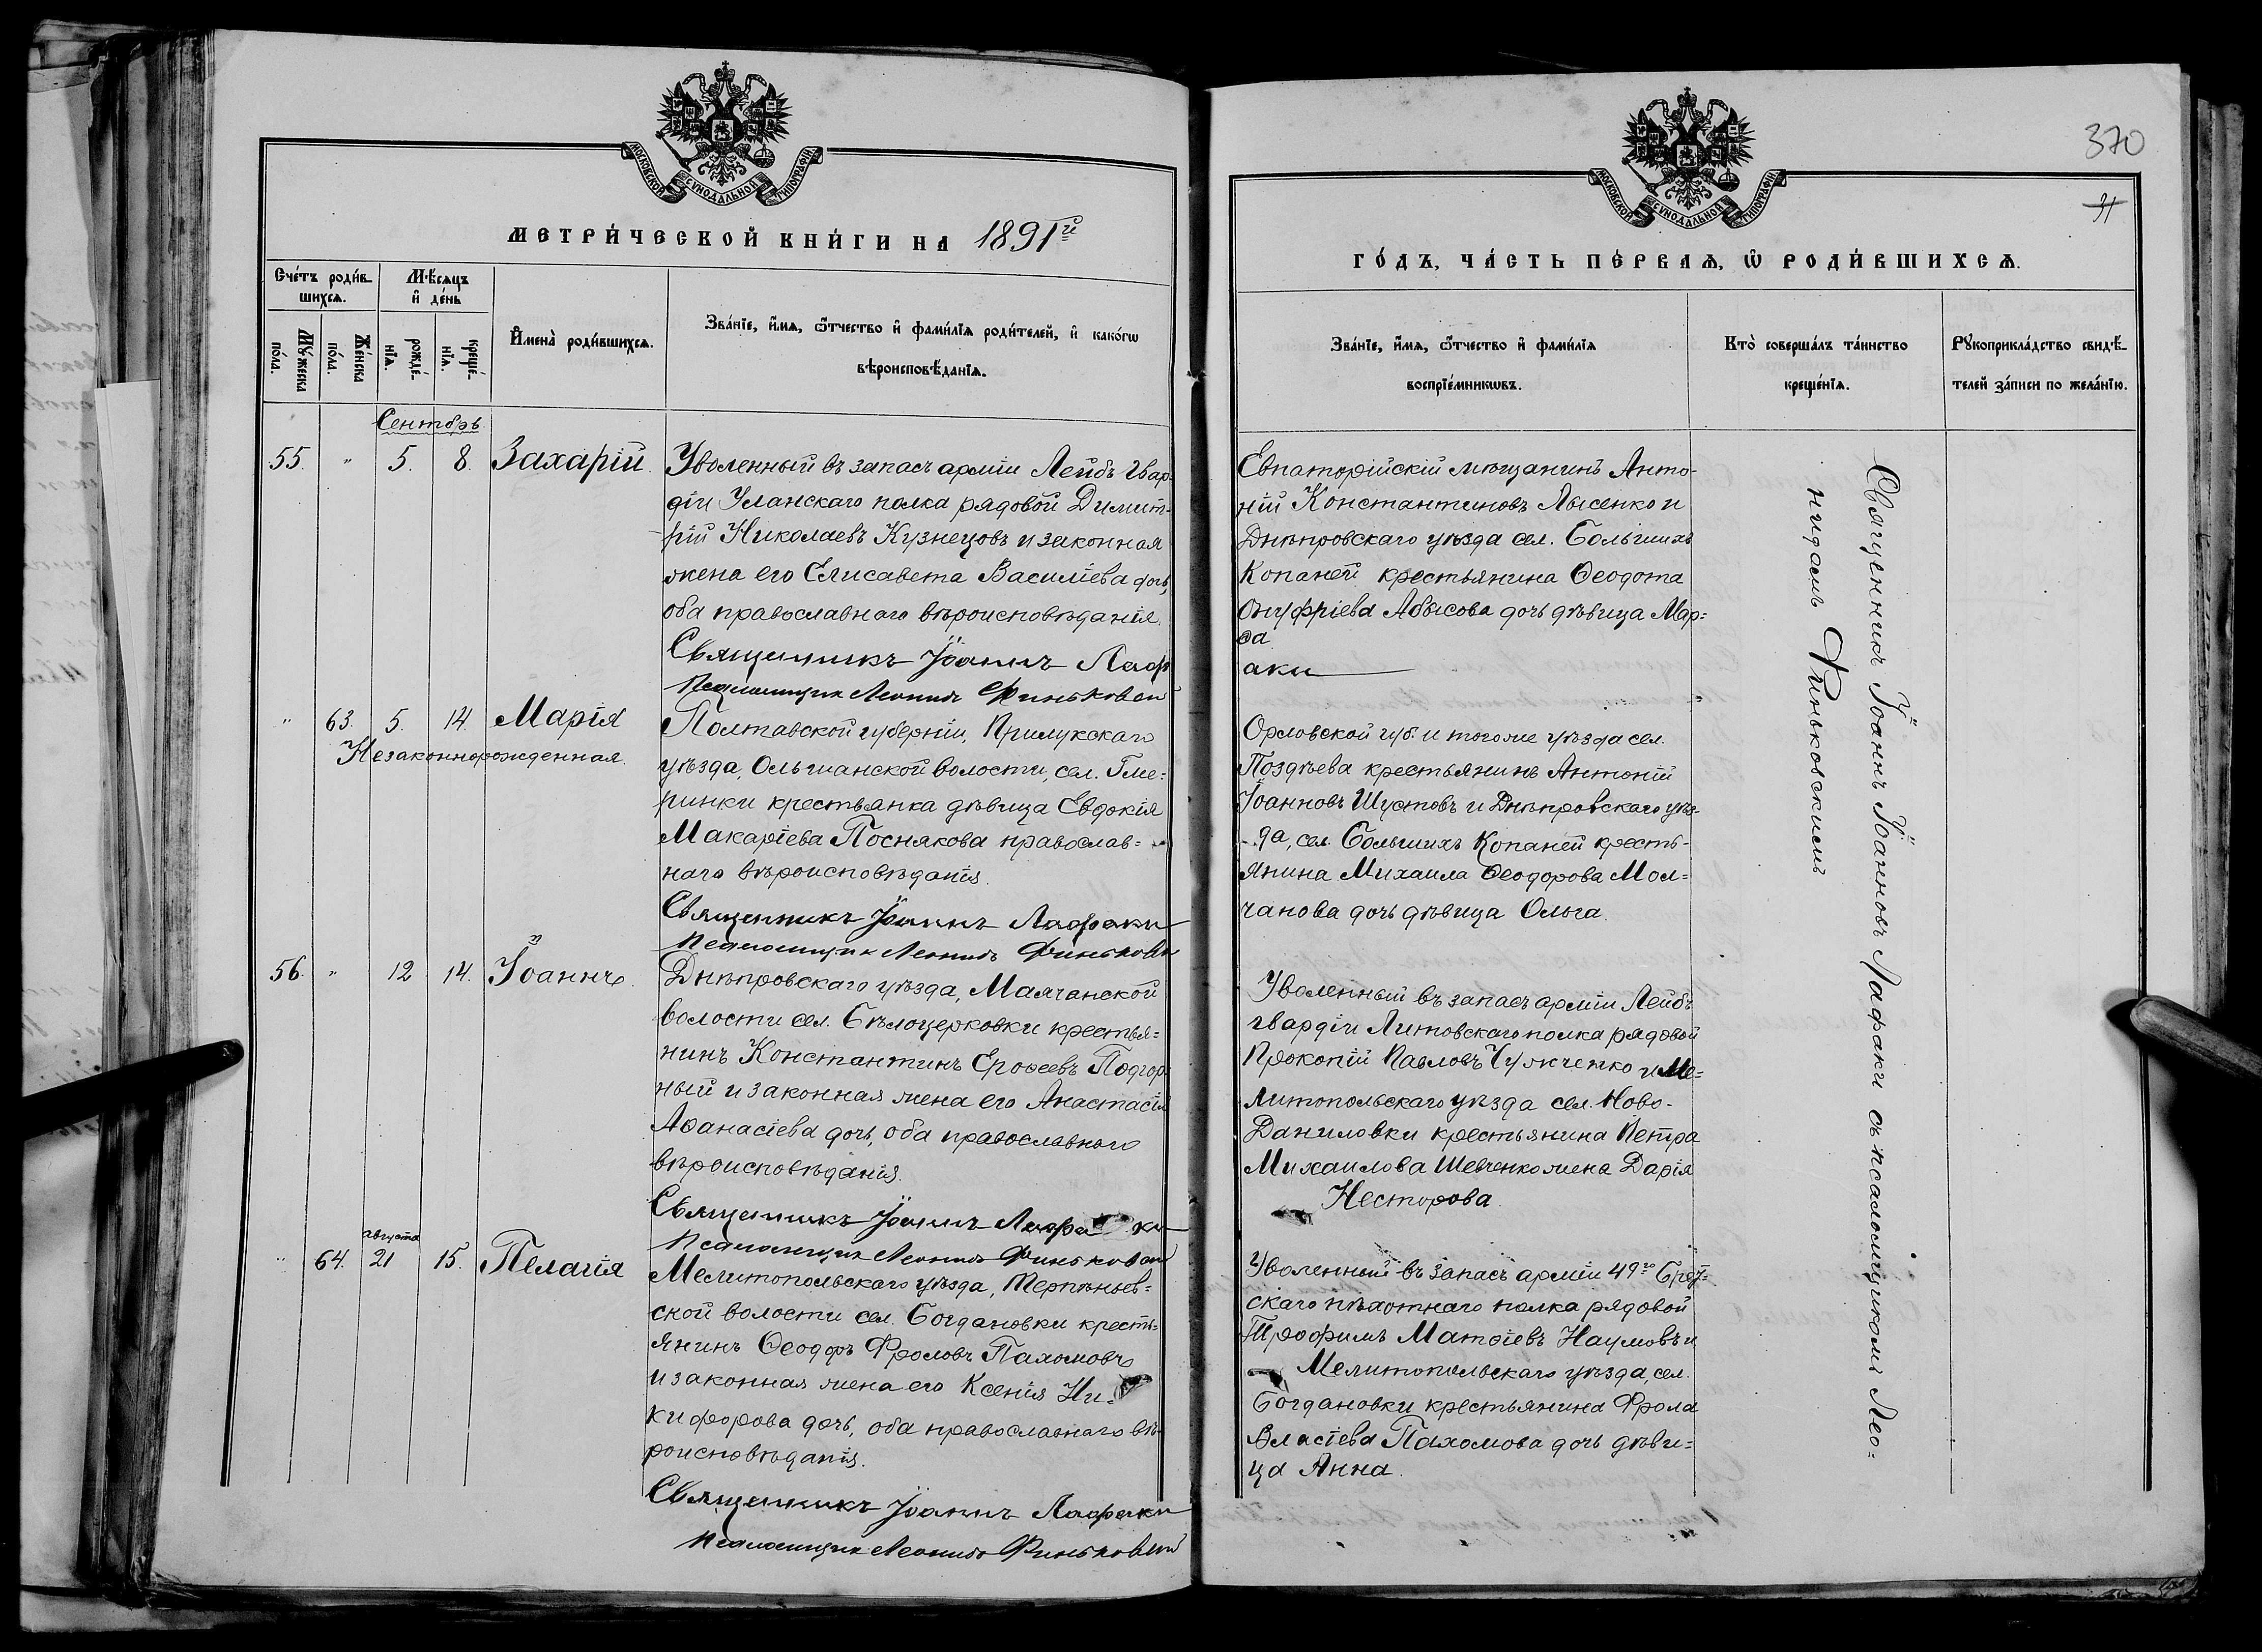 МОСКОВСКОЙ СѴНОДАЛЬНОЙ ТИПОГРАФІИ
МЕТРИ́ЧЕСКОЙ КНИ́ГИ НА 1891й
Сче́тъ роди́в-
шихсѧ.
Мѣ́сѧцъ
и҆ де́нь
Мꙋ́жеска
по́ла.
Же́нска
по́ла.
рожде́-
нїѧ.
креще́-
нїѧ.
И҆мена̀ роди́вшихсѧ.
Зва́нїе, и҆́мѧ, ѻ҆́тчество и҆ фами́лїѧ роди́телей, и҆ како́гѡ
вѣроисповѣ́данїѧ.
Сентябрь.
55. " 5. 8. Захарій.
Уволенный въ запасъ арміи Лейбъ Гвар-
діи Уланскаго полка рядовой Димит-
рій Николаевъ Кузнецовъ и законная
жена его Елисавета Василіева дочь,
оба православнаго вѣроисповѣданія.
Священникъ Іоаннъ Лаф
Псаломщик Леонидъ Финьковскій
" 63. 5. 14. Марія
Незаконнорожденная.
Полтавской губерніи, Прилукскаго
уѣзда, Ольшанской волости, сел. Гме-
ринки крестьянка дѣвица Евдокія
Макаріева Поснякова православ=
наго вѣроисповѣданія.
Священникъ Іоаннъ Лафаки
Псаломщик Леонидъ Финьковск
56. " 12 14. Іоаннъ.
Днѣпровскаго уѣзда, Маячанской
волости сел. Бѣлоцерковки крестья=
нинъ Константинъ Ероѳеевъ Подгор-
ный и законная жена его Анастасія
Аѳанасіева дочь, оба православнаго
вѣроисповѣданія.
Священникъ Іоаннъ Лафаки
Псаломщик Леонидъ Финьковскій
августа
" 64. 21 15. Пелагія
Мелитопольскаго уѣзда, Терпѣньев=
ской волости сел. Богдановки кресть=
янинъ Ѳеодоръ Фроловъ Пахомовъ
и законная жена его Ксенія Ни-
кифорова дочь, оба православнаго вѣ-
роисповѣданія.
Священникъ Іоаннъ Лафаки
Псаломщик Леонидъ Финьковскій
370
31
МОСКОВСКОЙ СѴНОДАЛЬНОЙ ТИПОГРАФІИ
ГО́ДЪ, ЧА́СТЬ ПЕ́РВАѦ, Ѡ҆ РОДИ́ВШИХСѦ.
Зва́нїе, и҆́мѧ, ѻ҆́тчество и҆ фами́лїѧ
воспрїе́мникѡвъ.
Кто̀ соверша́лъ та́инство
креще́нїѧ.
Рꙋкоприкла́дство свидѣ́-
телей за́писи по жела́нїю.
Евпаторійскій мѣщанинъ Анто-
ній Константиновъ Лысенко и
Днѣпровскаго уѣзда сел. Большихъ
Копаней крестьянина Ѳеодота
Онуфріева Абысова дочь дѣвица Мар=
ѳа
аки
Орловской губ. и тогоже уѣзда сел.
Поздѣева крестьянинъ Антоній
Іоанновъ Шустовъ и Днѣпровскаго уѣз-
да, сел. Большихъ Копаней кресть-
янина Михаила Ѳеодорова Мол=
чанова дочь дѣвица Ольга.
Уволенный въ запасъ арміи Лейбъ
гвардіи Литовскаго полка рядовой
Прокопій Павловъ Чужченко и Ме=
литопольскаго уѣзда сел. Ново-
Даниловки крестьянина Петра
Михаилова Шевченко жена Дарія
Несторова.
Уволенный въ запасъ арміи 49го Брест-
скаго пѣхотнаго полка рядовой
Трофимъ Матѳіевъ Наумовъ и
Мелитопольскаго уѣзда, сел.
Богдановки крестьянина Фрола
Власіева Пахомова дочь дѣви=
ца Анна.
Священникъ Іоаннъ Іоанновъ Лафаки съ псаломщикомъ Лео=
нидомъ Финьковскимъ